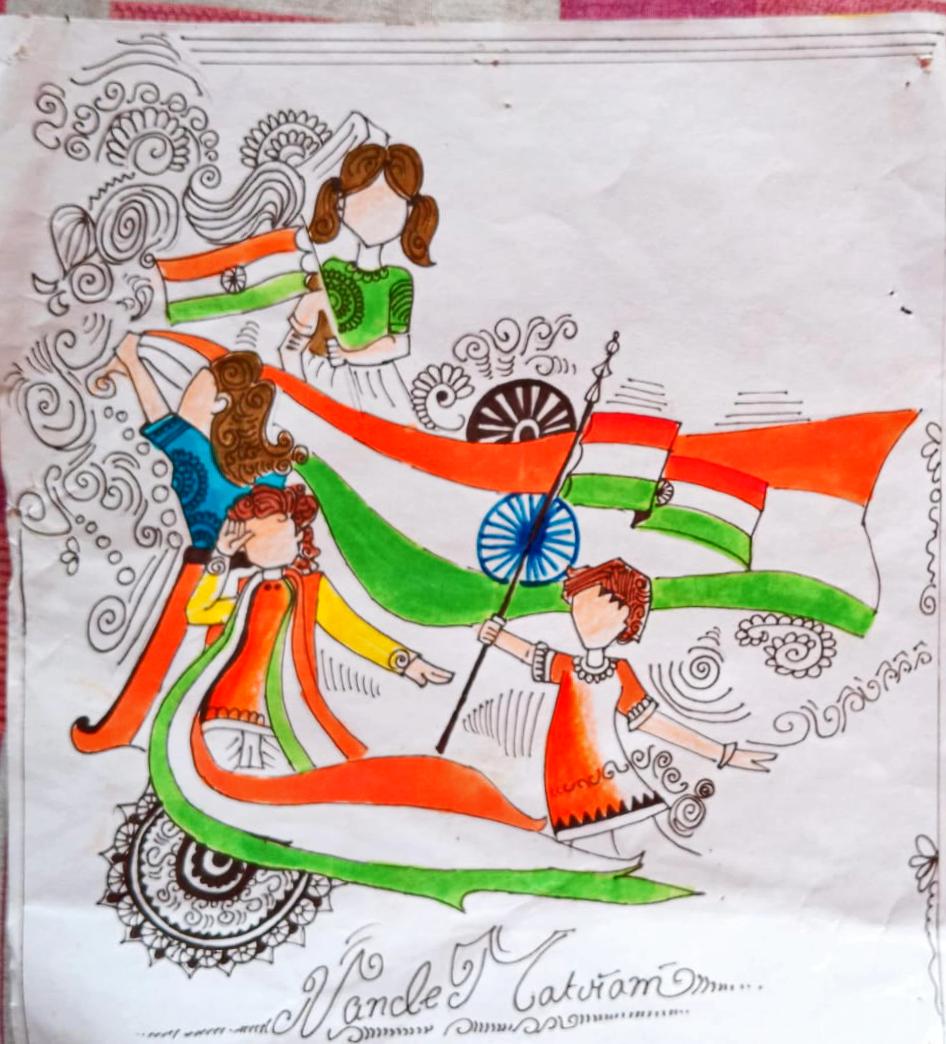 Vande Matram